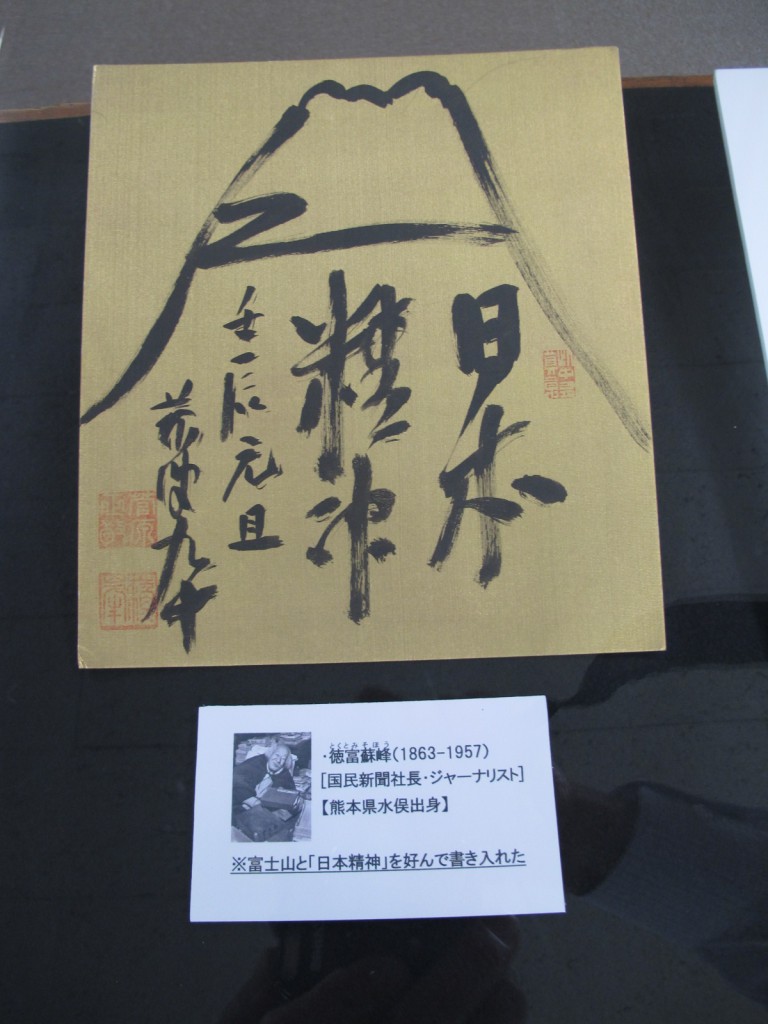 日本
精神
壬辰元旦
蘇峰九十
とくとみそほう
・徳富蘇峰(1863-1957)
[国民新聞社長・ジャーナリスト]
【熊本県水俣出身】
※富士山と「日本精神」を好んで書き入れた